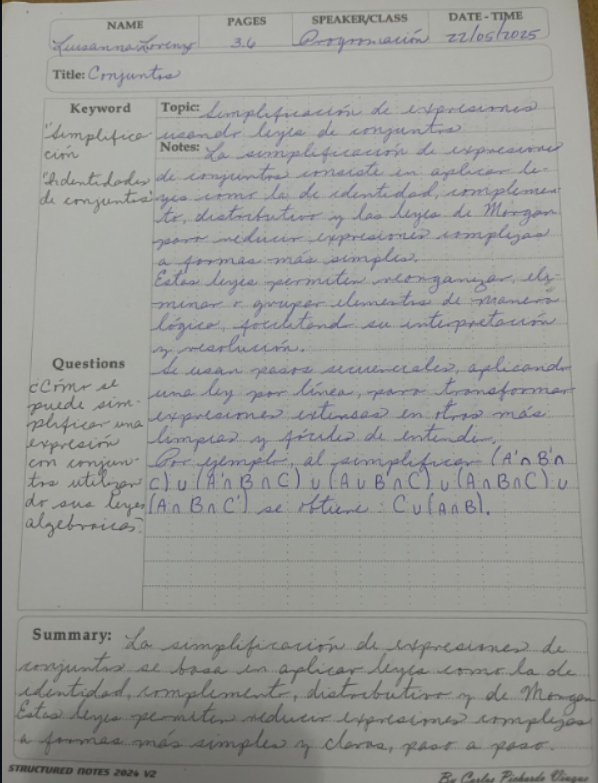 NAME PAGES SPEAKER/CLASS DATE - TIME
Luisanna Lorenzo 3.6 Programación 22/05/2025
Title: Conjuntos
Keyword
"Simplifica
ción
"Identidades
de conjuntos"
Topic: Simplificación de expresiones
usando leyes de conjuntos
Notes: La simplificación de expresiones
de conjuntos consiste en aplicar le-
yes como la de identidad, complemen
to, distributivo y las leyes de Morgan
para reducir expresiones complejas
a formas más simples.
Estas leyes permiten reorganizar, eli
minar o grupar elementos de manera
lógica, facilitand su interpretación
y resolución.
Se usan pasos secuenciales, aplicando
una ley por línea, para transformar
expresiones extensas en otras más
limpias y fáciles de entender.
Por ejemplo, al simplificar (A'∩B'∩
C) ∪ (A'∩B∩C) ∪ (A∪B'∩C) ∪ (A∩B∩C) ∪
(A∩B∩C') se obtiene: C∪(A∩B).
Questions
¿Cómo se
puede sim-
plificar una
expresión
con conjun-
tos utilizan
do sus leyes
algebraicas?
Summary: La simplificación de expresiones de
conjuntos se basa en aplicar leyes como la de
identidad, complemento, distributivo y de Morgan
Estas leyes permiten reducir expresiones complejas
a formas más simples y claras, paso a paso.
STRUCTURED NOTES 2024 V2 By Carlos Pichardo Viuque